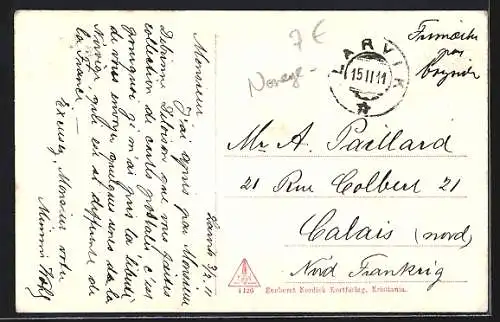 7 €
Norvège
LARVIK
15 II 11
Larvik 9/2 11
Monsieur
J'ai appris par Monsieur
Delirime Deloison que vous faites
collection de cartes postales, c'est
pourquoi je m'ai pris la liberté
de vous envoyer quelques unes de la
Norvège, qui est si différente de
la France.
Excusez, Monsieur votre
Mimmi
Mr A. Paillard
21 Rue Colbert 21
Calais (nord)
Nord Frankrig
1126 Eneberet Nordisk Kortforlag, Kristiania.